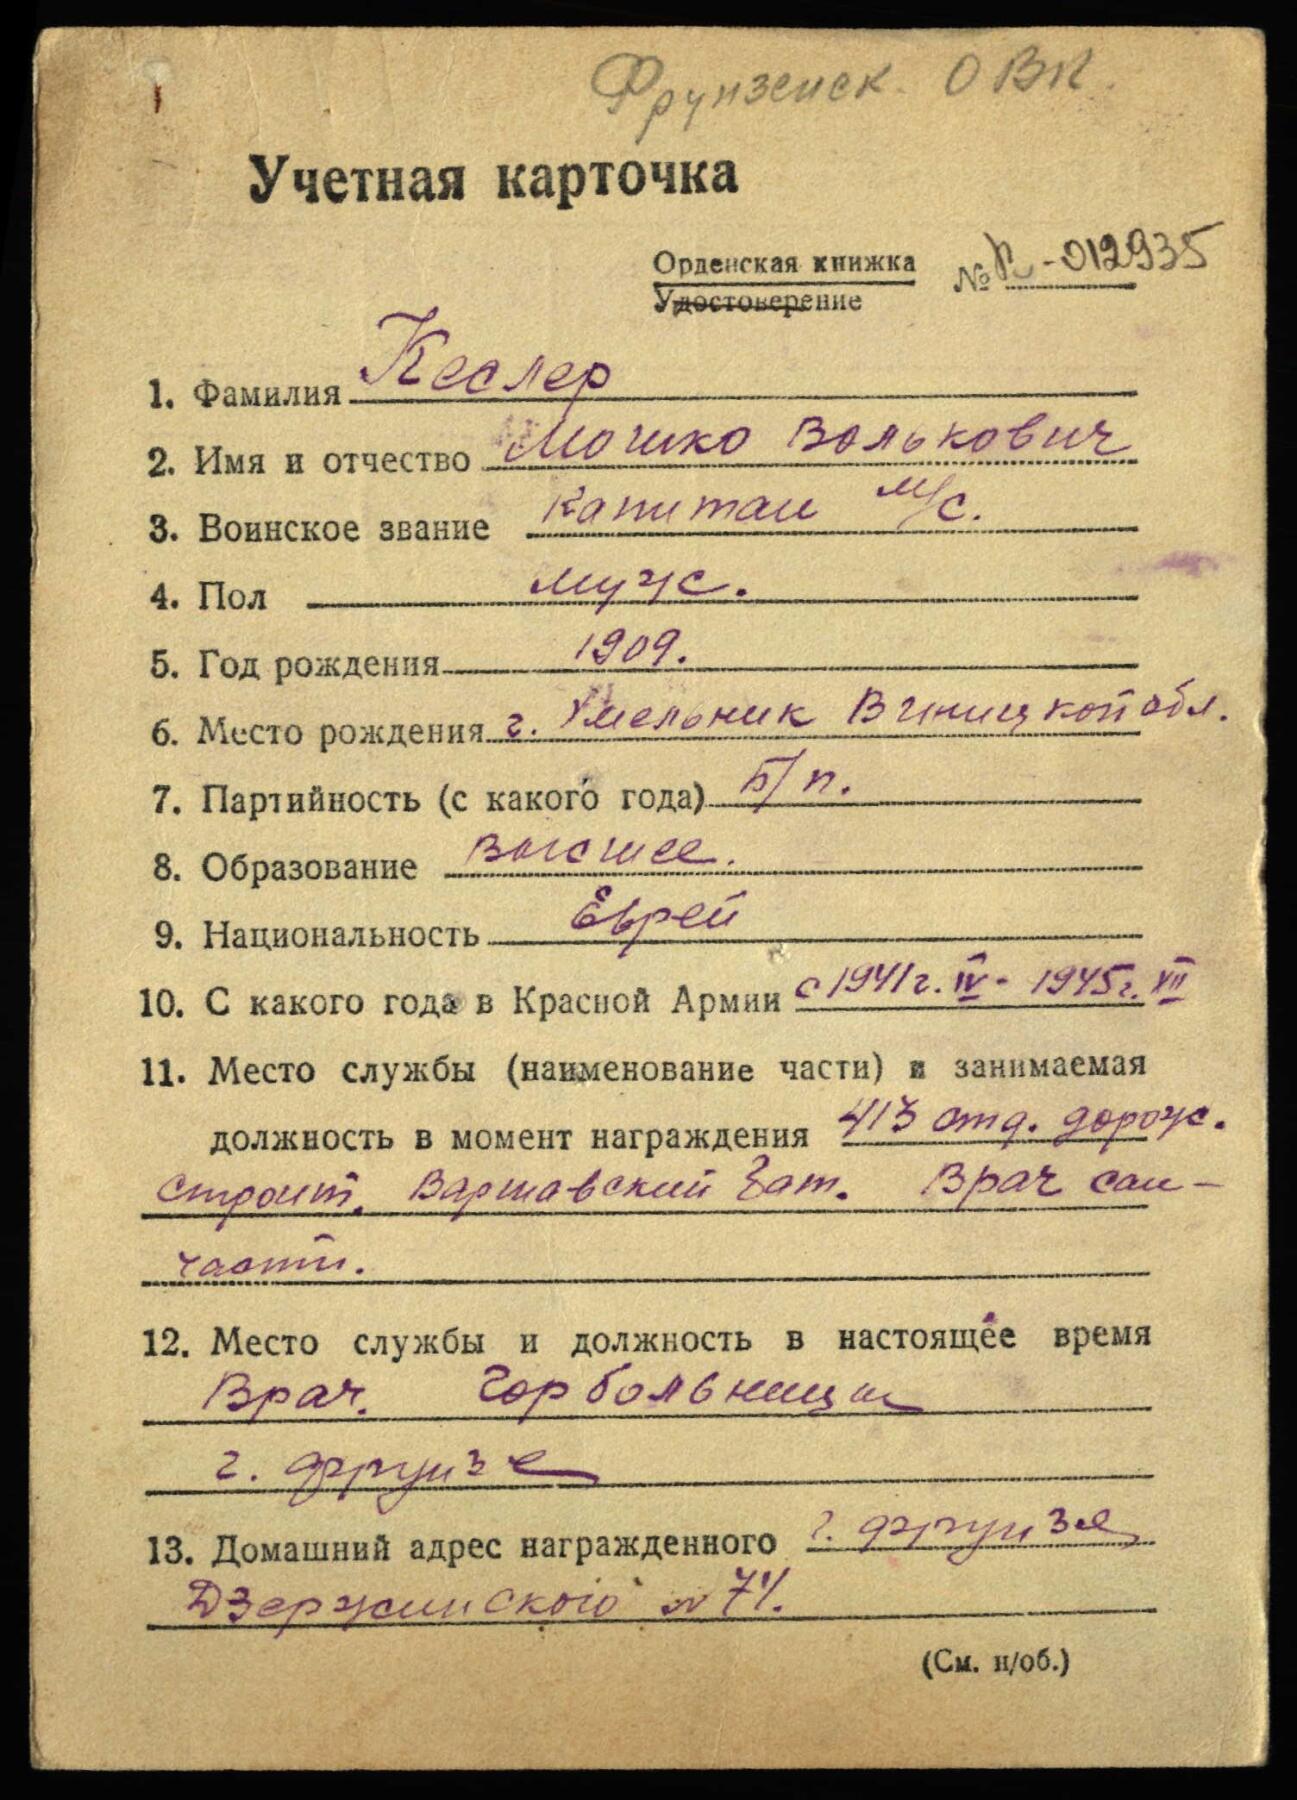 Фрунзенск. ОВК.
Учетная карточка
Орденская книжка
Удостоверение
№ -012935
1. Фамилия Кеслер
2. Имя и отчество Мошко Волькович
3. Воинское звание капитан м/с.
4. Пол муж.
5. Год рождения 1909.
6. Место рождения г. Хмельник Виницкой обл.
7. Партийность (с какого года) Б/п.
8. Образование высшее.
9. Национальность Еврей
10. С какого года в Красной Армии с 1941 г. IV - 1945 г. XII
11. Место службы (наименование части) и занимаемая
должность в момент награждения 413 отд. дорож.
строит. Варшавский бат. Врач сан-
части.
12. Место службы и должность в настоящее время
Врач. Горбольницы
г. Фрунзе
13. Домашний адрес награжденного г. Фрунзе
Дзержинского № 74.
(См. н/об.)